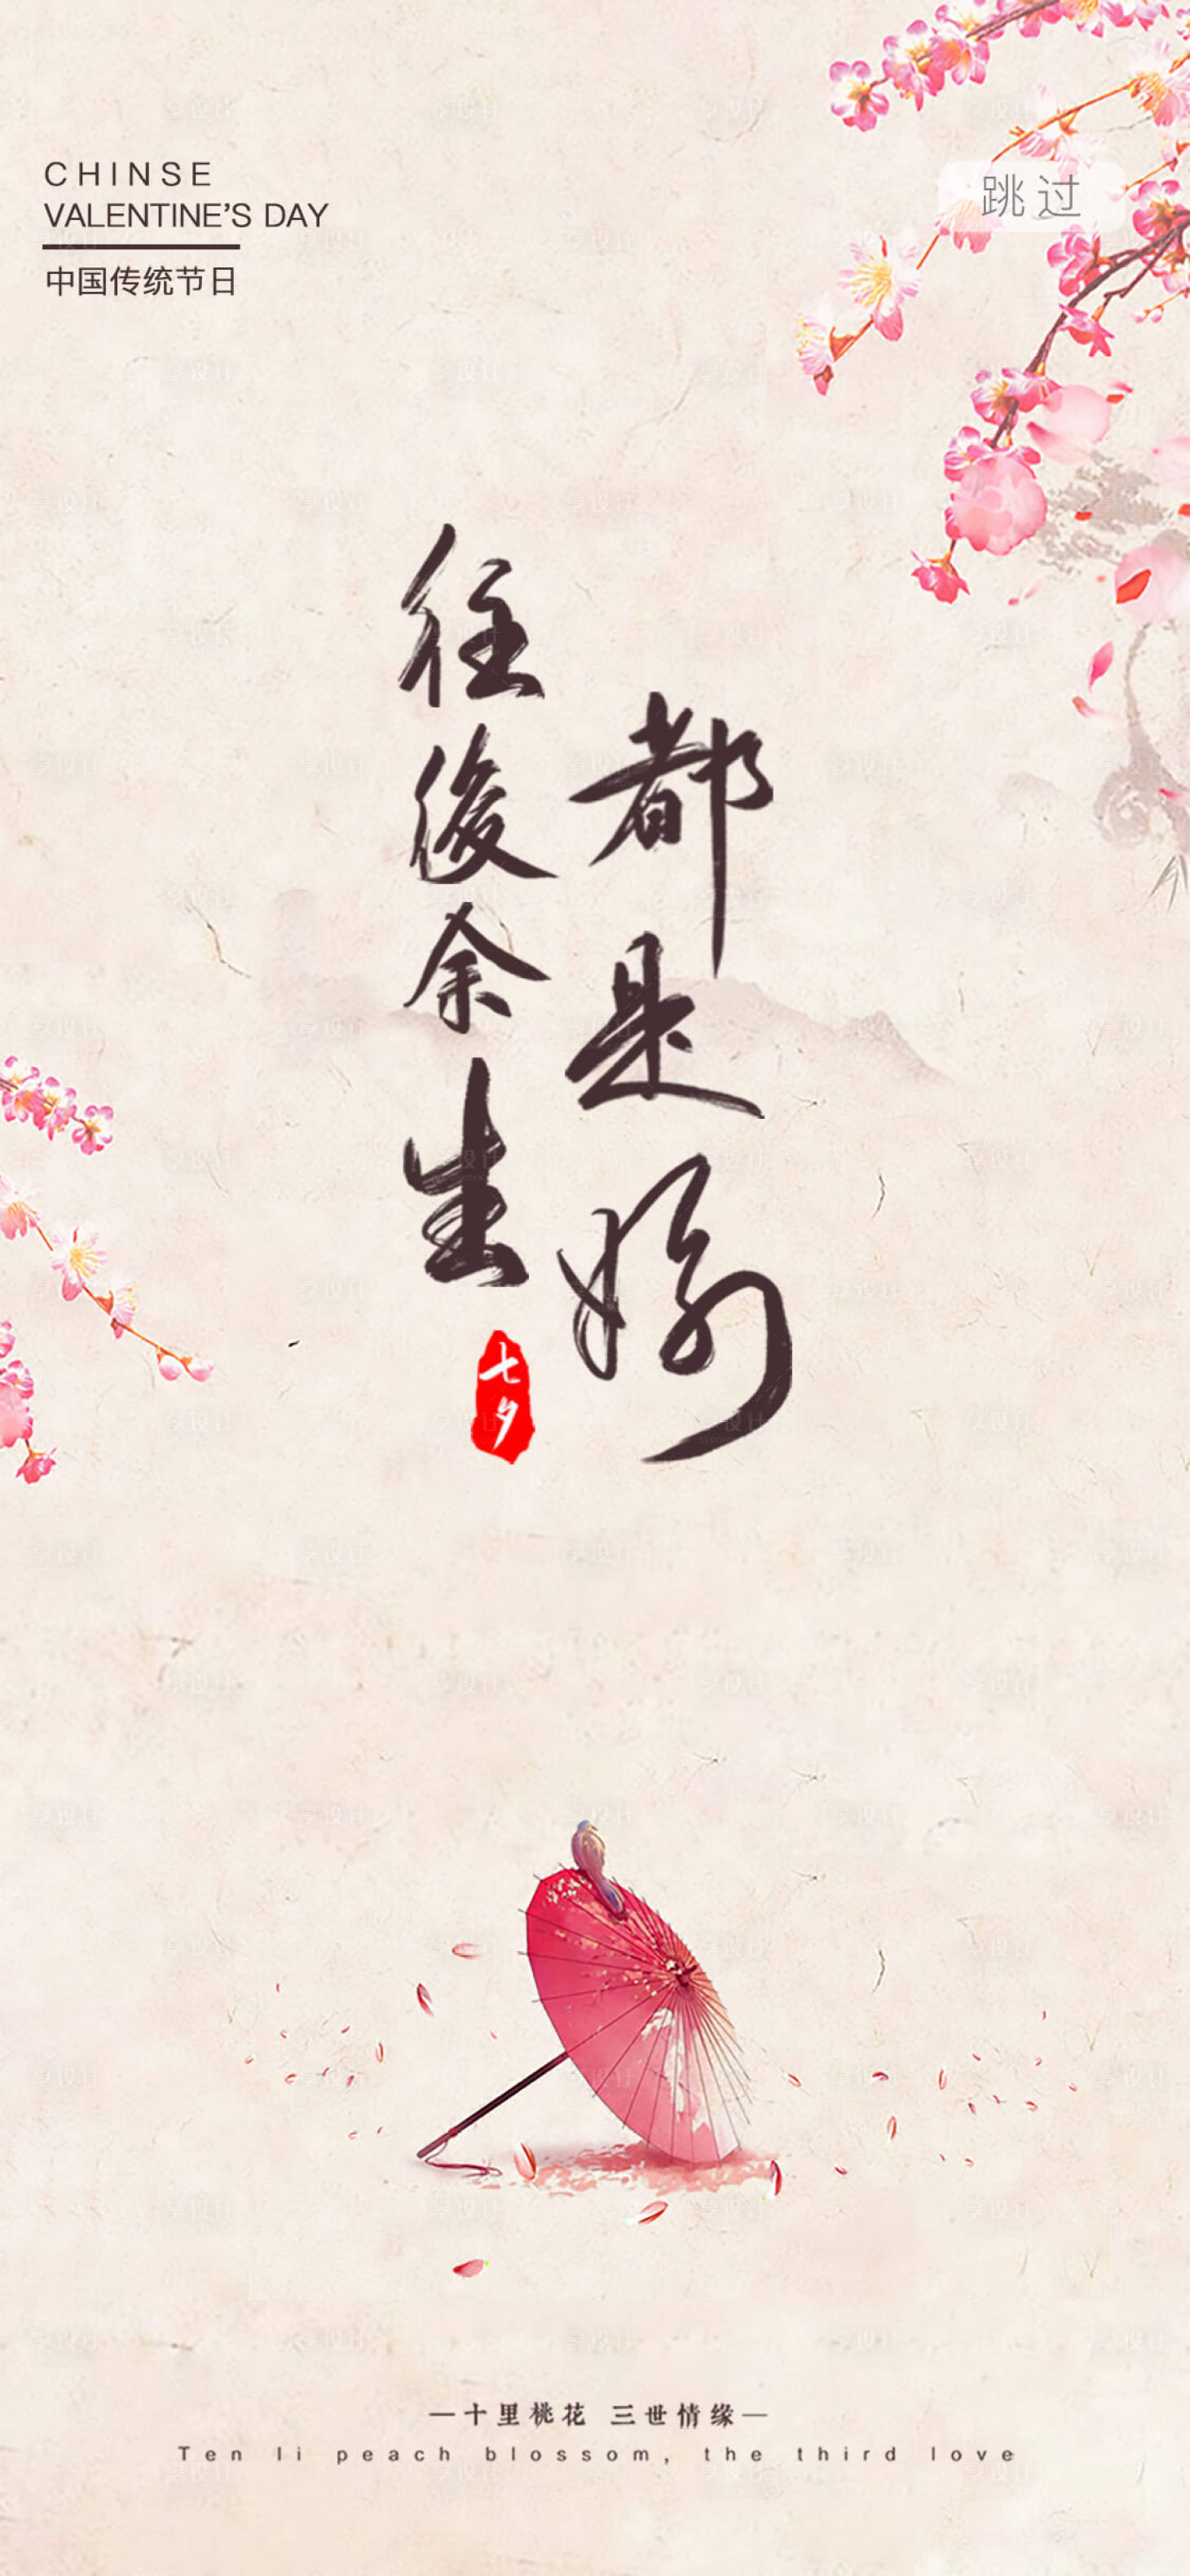 CHINSE
VALENTINE'S DAY
中国传统节日
跳过
往後余生
都是妳
七夕
—十里桃花 三世情缘—
Ten li peach blossom, the third love
享设计